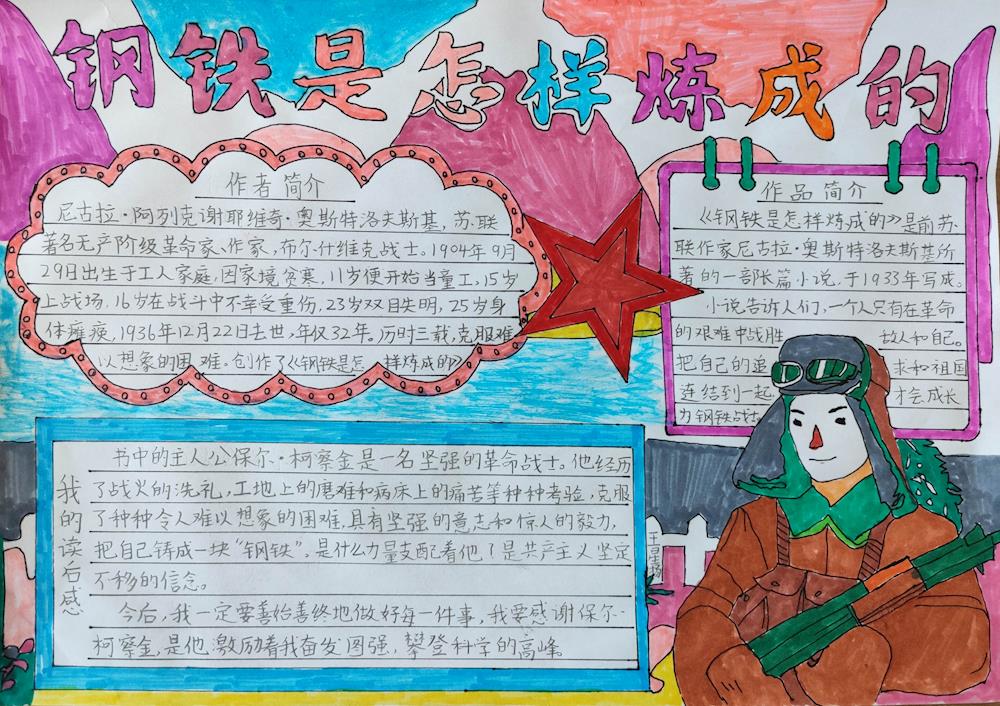 钢铁是怎样炼成的
作者简介
尼古拉·阿列克谢耶维奇·奥斯特洛夫斯基，苏联
著名无产阶级革命家、作家，布尔什维克战士。1904年9月
29日出生于工人家庭，因家境贫寒，11岁便开始当童工，15岁
上战场，16岁在战斗中不幸受重伤，23岁双目失明，25岁身
体瘫痪，1936年12月22日去世，年仅32年。历时三载，克服难
以想象的困难。创作了《钢铁是怎样炼成的》
作品简介
《钢铁是怎样炼成的》是前苏
联作家尼古拉·奥斯特洛夫斯基所
著的一部长篇小说，于1933年写成。
小说告诉人们，一个人只有在革命
的艰难中战胜敌人和自己。
把自己的追求和祖国
连结到一起才会成长
为钢铁战士
我的读后感
书中的主人公保尔·柯察金是一名坚强的革命战士。他经历
了战火的洗礼，工地上的磨难和病床上的痛苦等种种考验，克服
了种种令人难以想象的困难，具有坚强的意志和惊人的毅力，
把自己铸成一块“钢铁”，是什么力量支配着他！是共产主义坚定
不移的信念。
今后，我一定要善始善终地做好每一件事，我要感谢保尔·
柯察金，是他激励着我奋发图强，攀登科学的高峰。